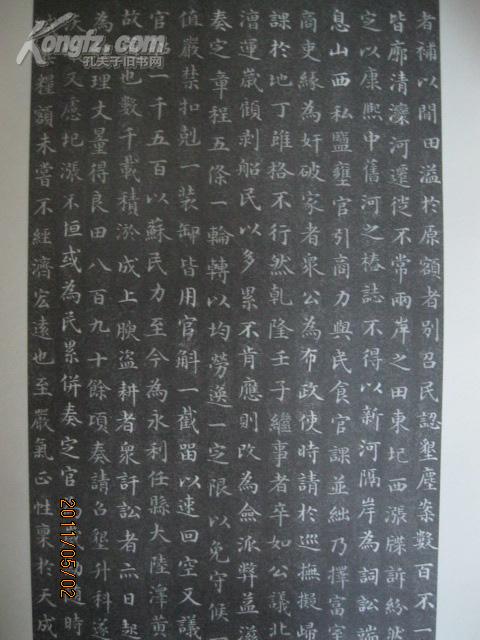 者補以閒田溢於原額者別召民認墾塵案數百不一
皆廓清灤河遷徙不常兩岸之田東圮西漲牒訴紛
定以康熙中舊河之樁誌不得以新河隔岸為詞訟端
息山西私鹽壅官引商力與民食官課並絀乃擇富
商吏緣為奸破家者眾公為布政使時請於巡撫擬
課於地丁雖格不行然乾隆壬子繼事者卒如公議北
漕運歲顧剥船民以多累不肯應則改為僉派弊益滋
奏定章程五條一輪轉以均勞逸一定限以免守候
值嚴禁扣剋一裝卸皆用官斛一截留以速回空又議
官 一千五百以蘇民力至今為永利任縣大陸澤黄
故 也數千載積淤成上腴盜耕者眾訐訟者亦日起
為理丈量得良田八百九十餘頃奏請召墾升科遂
又慮圮漲不恒或為民累併奏定官 時
糧額未嘗不經濟宏遠也至嚴氣正性稟於天成
Kongfz.com
孔夫子旧书网
2011/05/02